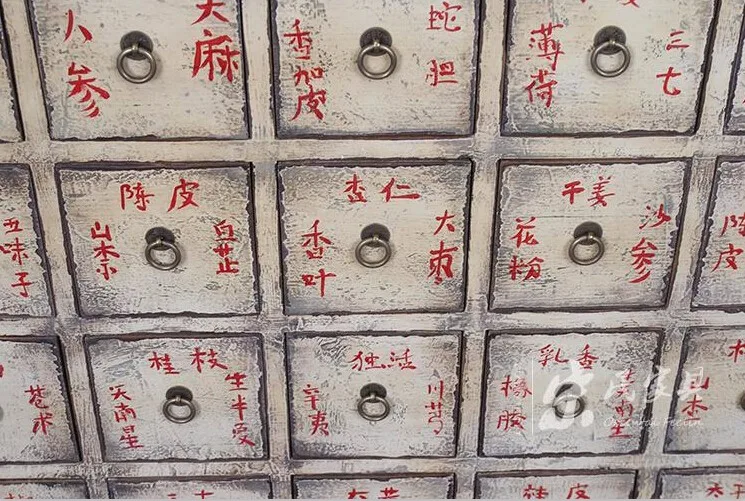 人参
天麻
香加皮
蛇胆
薄荷
三七
五味子
陈皮
山柰
白芷
杏仁
香叶
大枣
干姜
花粉
沙参
陈皮
桂枝
天南星
生半夏
独活
辛夷
川芎
乳香
天南星
民家具